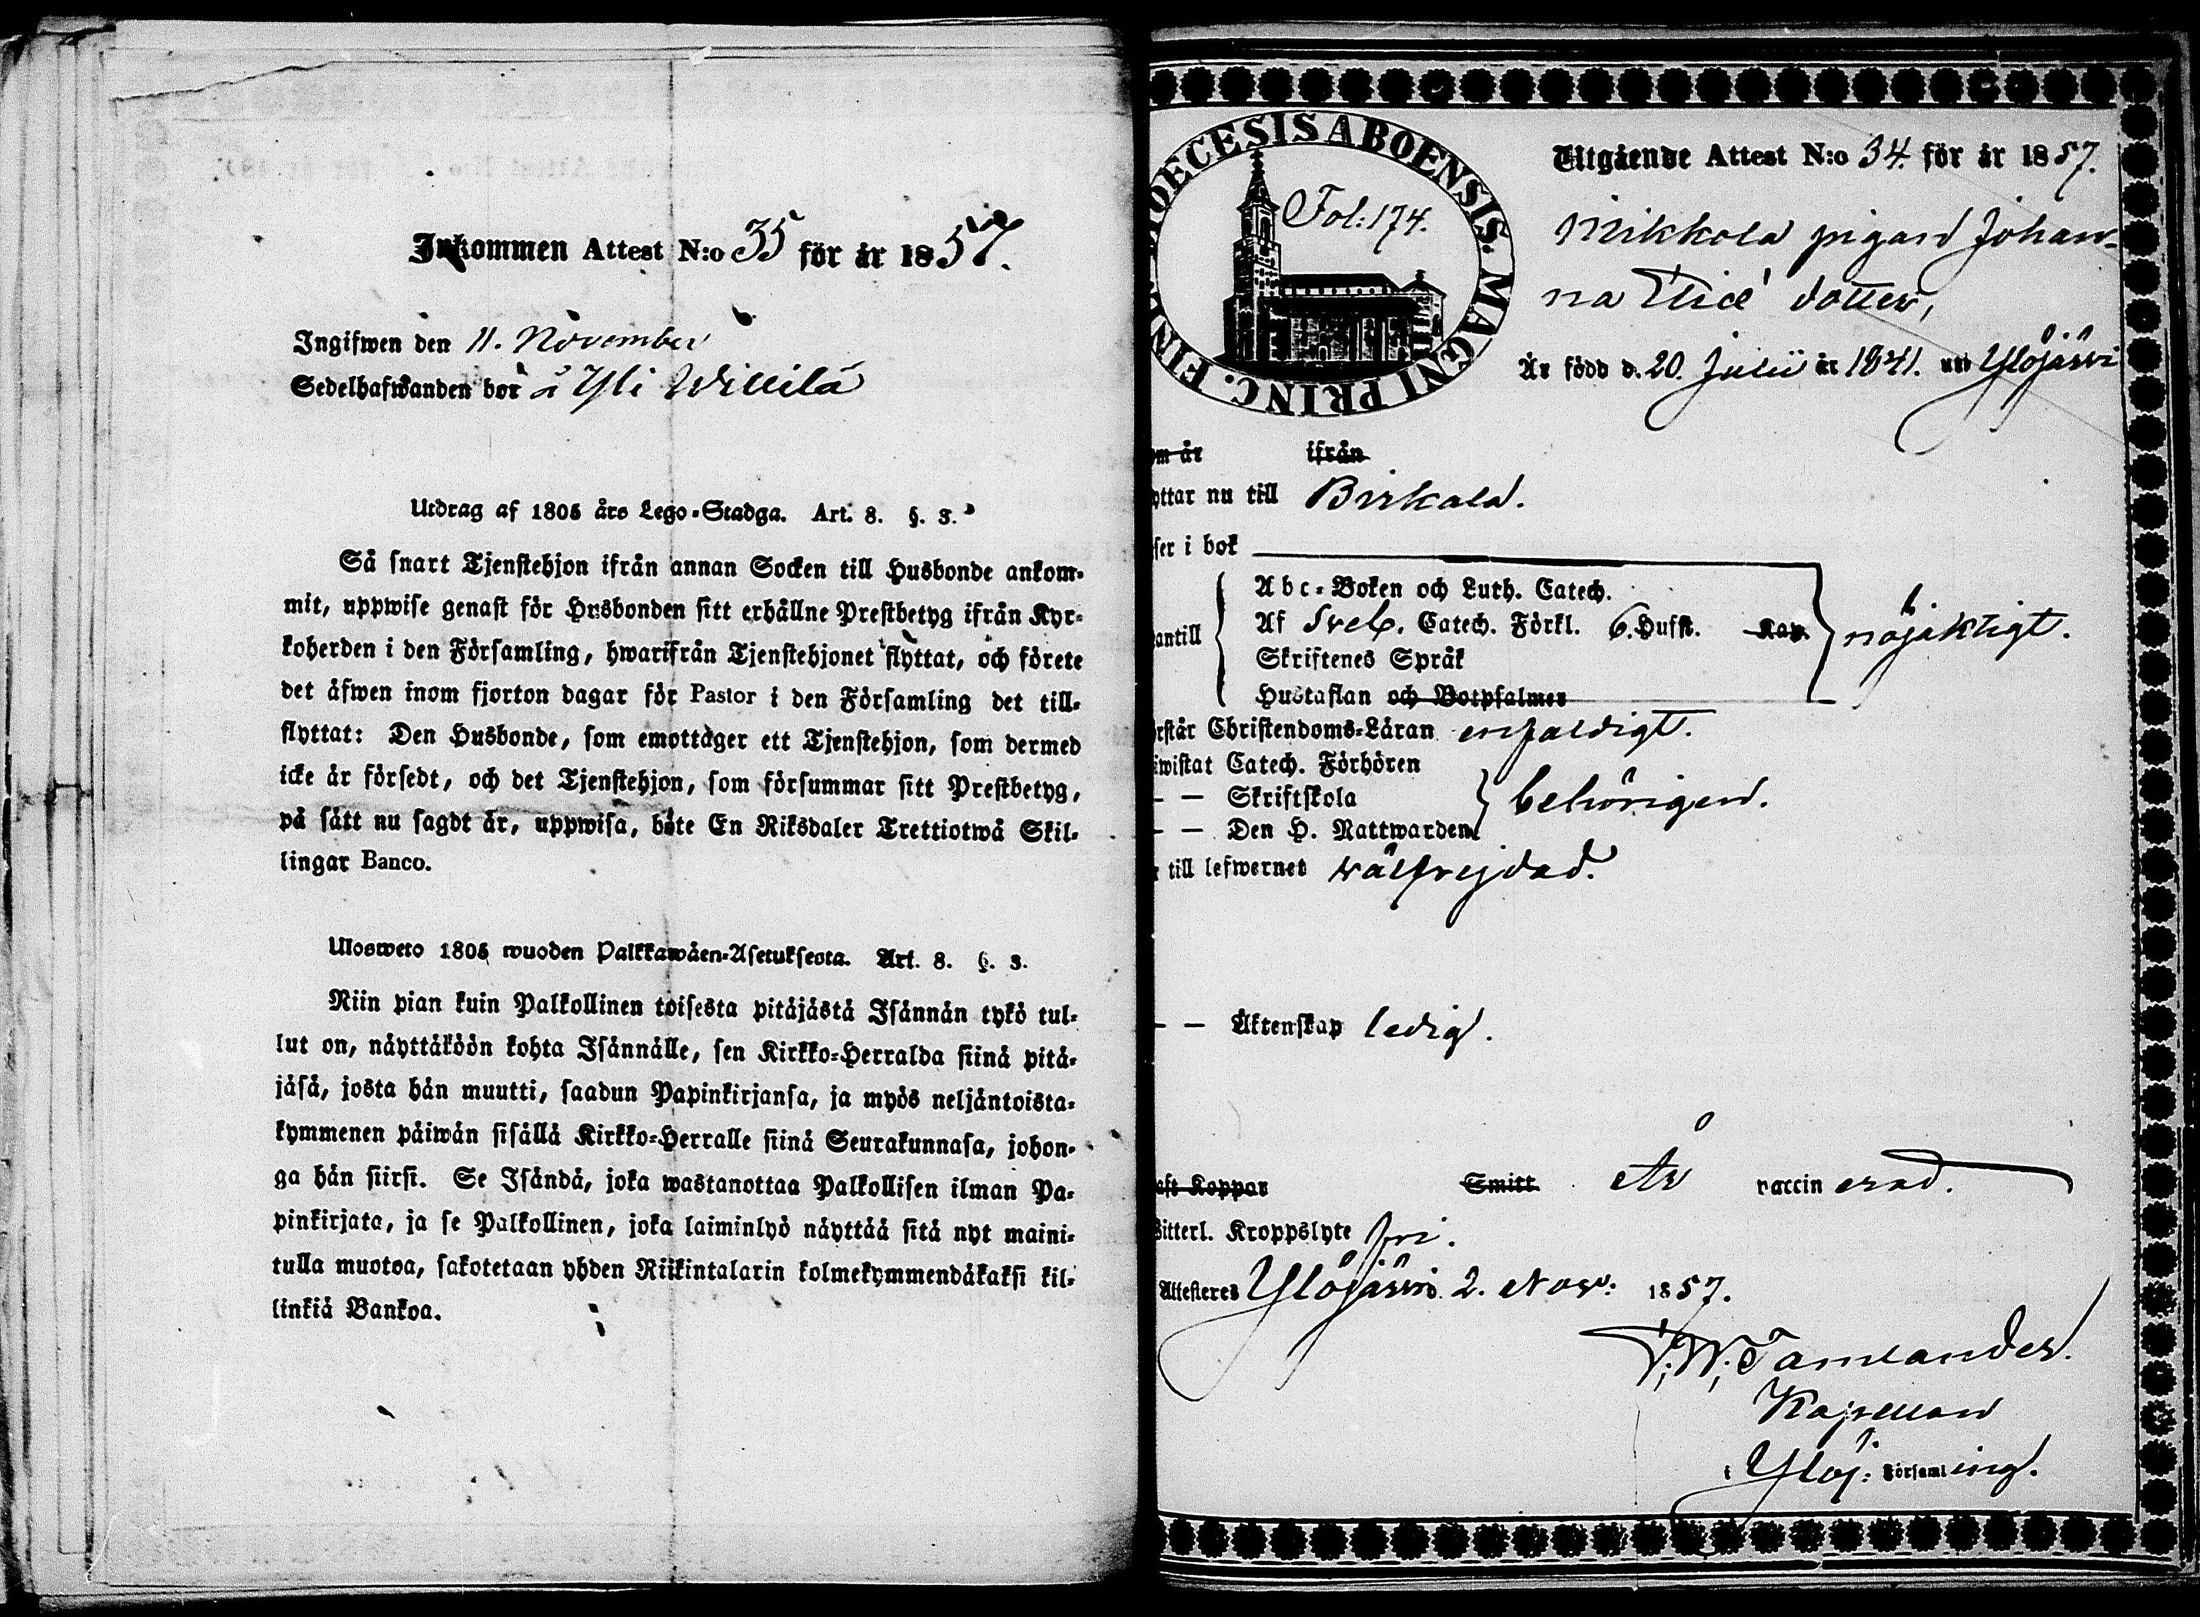 Inkommen Attest N:o 35 för år 1857.
Ingifwen den 11. November
Sedelhafwanden bor å Yli Willilä
Utdrag af 1805 års Lego-Stadga. Art. 8. §. 3.
Så snart Tjenstehjon ifrån annan Socken till Husbonde ankom-
mit, uppwise genast för Husbonden sitt erhållne Prestbetyg ifrån Kyr-
koherden i den Församling, hwarifrån Tjenstehjonet flyttat, och förete
det äfwen inom fjorton dagar för Pastor i den Församling det till-
flyttat: Den Husbonde, som emottager ett Tjenstehjon, som dermed
icke är försedt, och det Tjenstehjon, som försummar sitt Prestbetyg,
på sätt nu sagdt är, uppwisa, böte En Riksdaler Trettiotwå Skil-
lingar Banco.
Ulosweto 1805 wuoden Palkkawäen-Asetuksesta. Art. 8. §. 3.
Niin pian kuin Palkollinen toisesta pitäjästä Isännän tykö tul-
lut on, näyttäköön kohta Isännälle, sen Kirkko-Herralda siinä pitä-
jäsä, josta hän muutti, saadun Papinkirjansa, ja myös neljäntoista-
kymmenen päiwän sisällä Kirkko-Herralle siinä Seurakunnasa, johon-
ga hän siirsi. Se Isändä, joka wastanottaa Palkollisen ilman Pa-
pinkirjata, ja se Palkollinen, joka laiminlyö näyttää sitä nyt maini-
tulla muotoa, sakotetaan yhden Riikintalarin kolmekymmendäkaksi kil-
linkiä Bankoa.
DIOECESIS ABOENSIS. MAGNI PRINC. FINL.
Fol: 174.
Utgående Attest N:o 34 för år 1857.
Mikkola pigan Johan-
na dotter,
Är född d. 20 Julii år 1841. uti Ylöjärvi
om år ifrån
yttar nu till Birkala.
ser i bok
Abc-Boken och Luth. Catech.
Af Sveb. Catech. Förkl. 6. Hufst. Kap.
antill nöjaktigt.
Skriftenes Språk
Hustaflan och Botpsalmer
rstår Christendoms-Läran enfaldigt.
iwistat Catech. Förhören
— — Skriftskola behörigen.
— — Den H. Nattwarden
till lefwernet wälfrejdad.
— — Äktenskap ledig.
aft Koppor Smitt. Är vaccinerad.
Witterl. Kroppslyte fri.
Attesteres Ylöjärvi d. 2. Nov: 1857.
Kapellan
i Ylöj: Församling.